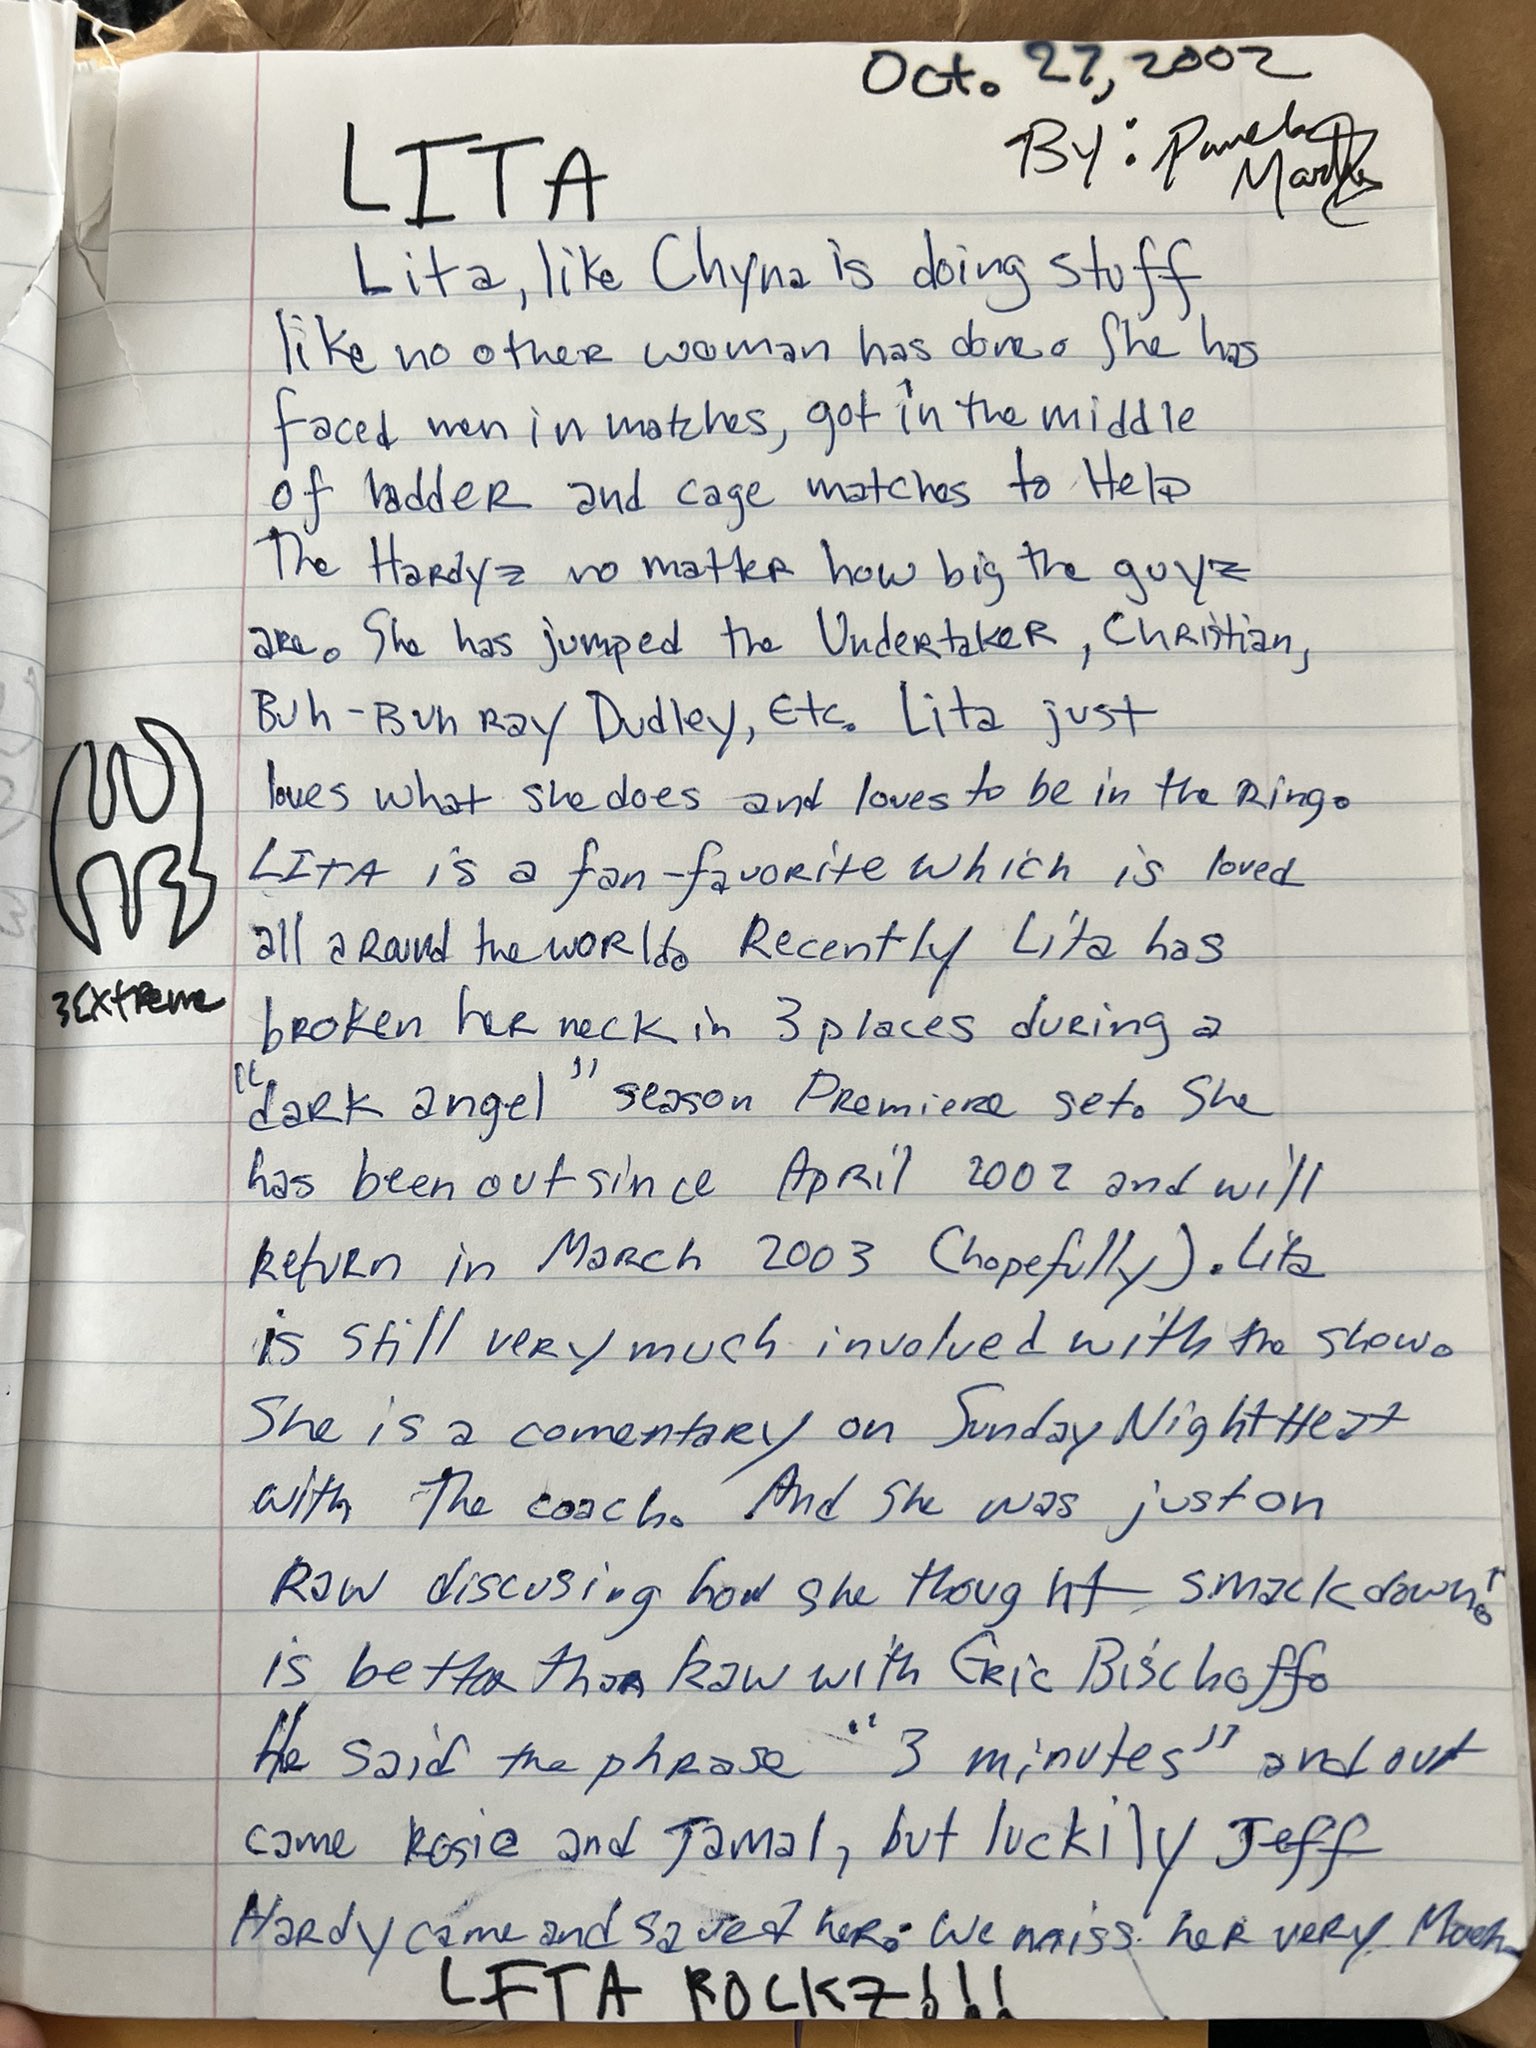 Oct. 27, 2002
By: Pamela
LITA
Lita, like Chyna is doing stuff
like no other woman has done. She has
faced men in matches, got in the middle
of ladder and cage matches to Help
The Hardyz no matter how big the guyz
are. She has jumped the Undertaker, Christian,
Buh-Buh Ray Dudley, Etc. Lita just
loves what she does and loves to be in the Ring.
LITA is a fan-favorite which is loved
all around the world. Recently Lita has
broken her neck in 3 places during a
"dark angel" season Premiere set. She
has been out since April 2002 and will
return in March 2003 (hopefully). Lita
is still very much involved with the show.
She is a comentary on Sunday Night Heat
with The coach. And she was just on
Raw discusing how she thought smackdown!
is better than Raw with Eric Bischoff.
He said the phrase "3 minutes" and out
came Rosie and Jamal, but luckily Jeff
Hardy came and saved her. We miss her very Much
LITA ROCKZ!!!
3Extreme